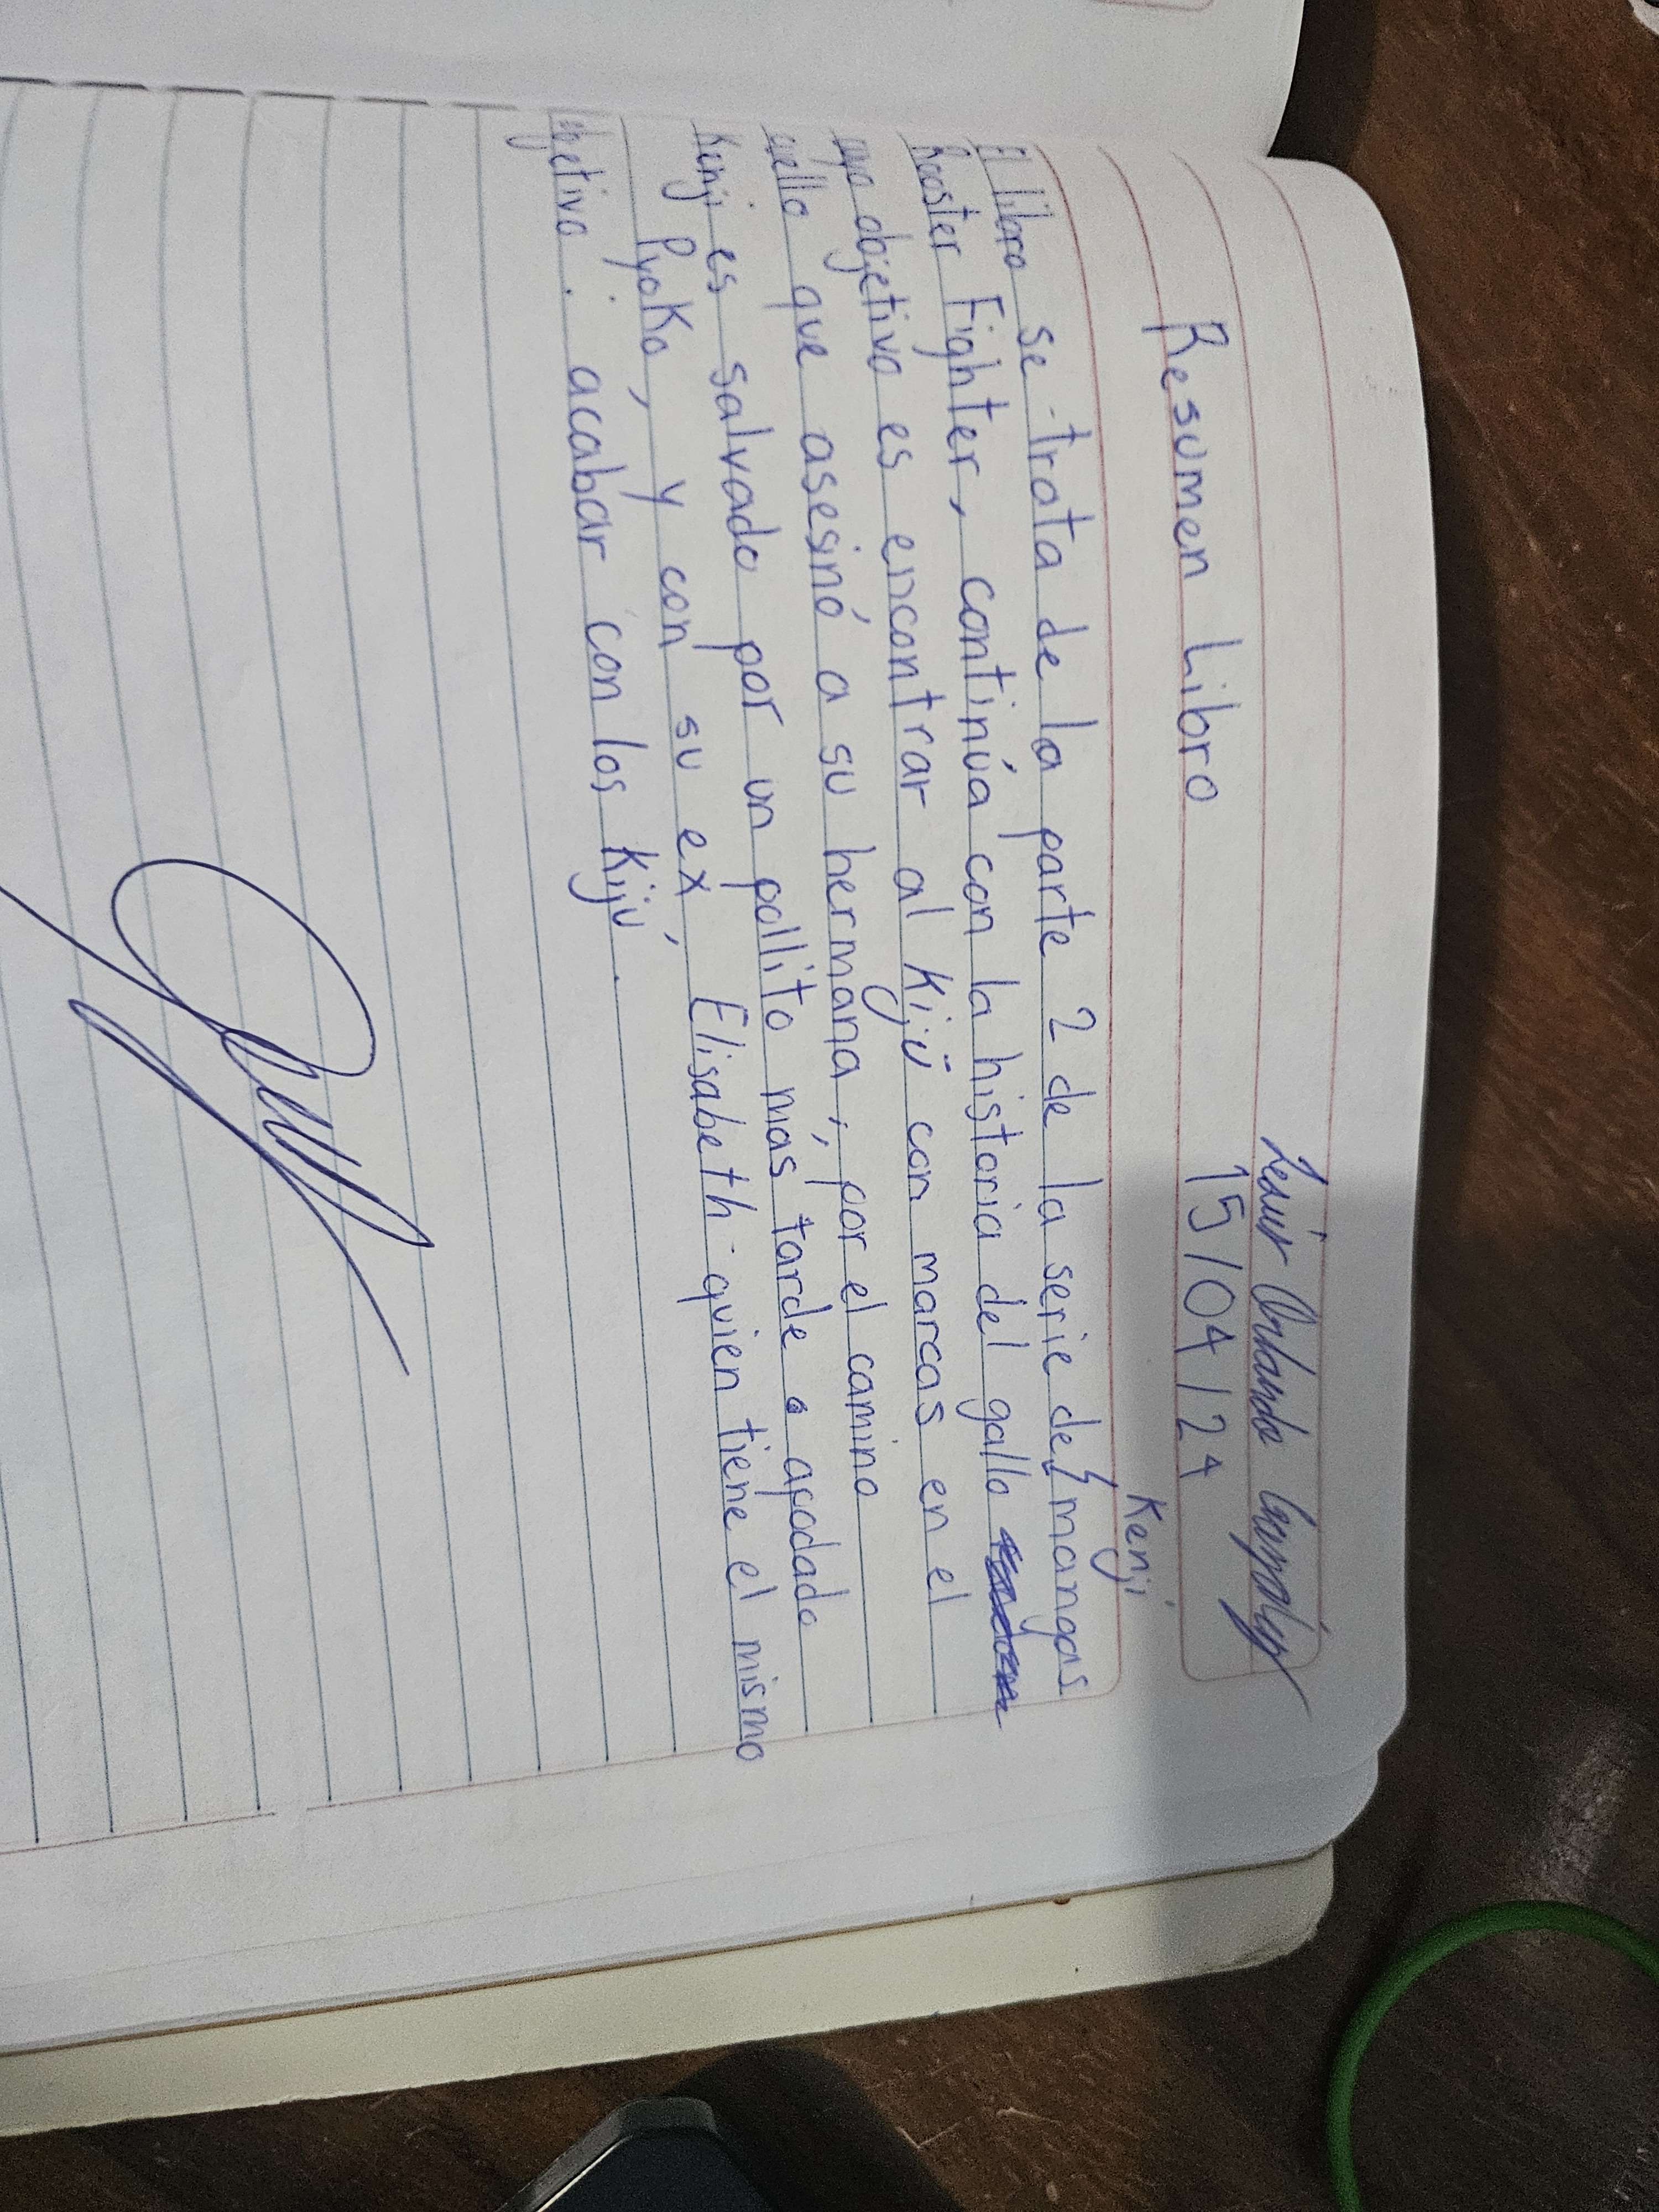 Orlando
15/04/24
Resumen Libro
Kenji
El libro se trata de la parte 2 de la serie de mangas
Rooster Fighter, continúa con la historia del gallo
cuyo objetivo es encontrar al Kijū con marcas en el
cuello que asesinó a su hermana, por el camino
Kenji es salvado por un pollito más tarde apodado
Pyoko, y con su ex, Elisabeth quien tiene el mismo
objetivo: acabar con los Kiju.